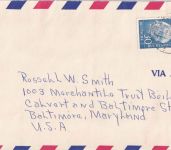 VIA
Russell W. Smith
1003 Merchantile Trust Buil
Calvert and Baltimore St
Baltimore, Maryland
U.S.A